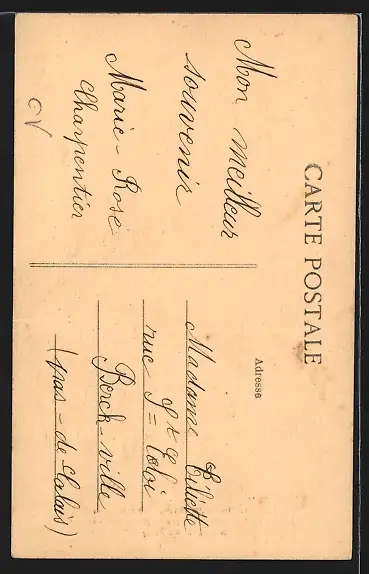 CARTE POSTALE
Mon meilleur
souvenir
Marie-Rose
Charpentier
CV
Adresse
Madame
rue St Eloi
Berck-ville
(Pas-de-Calais)